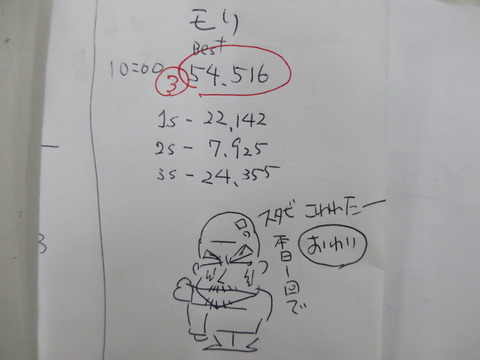 モリ
Best
10:00 ③ 54.516
1s - 22,142
2s - 7,925
3s - 24,355
スタビ こわれたー
本日1回で
おわり